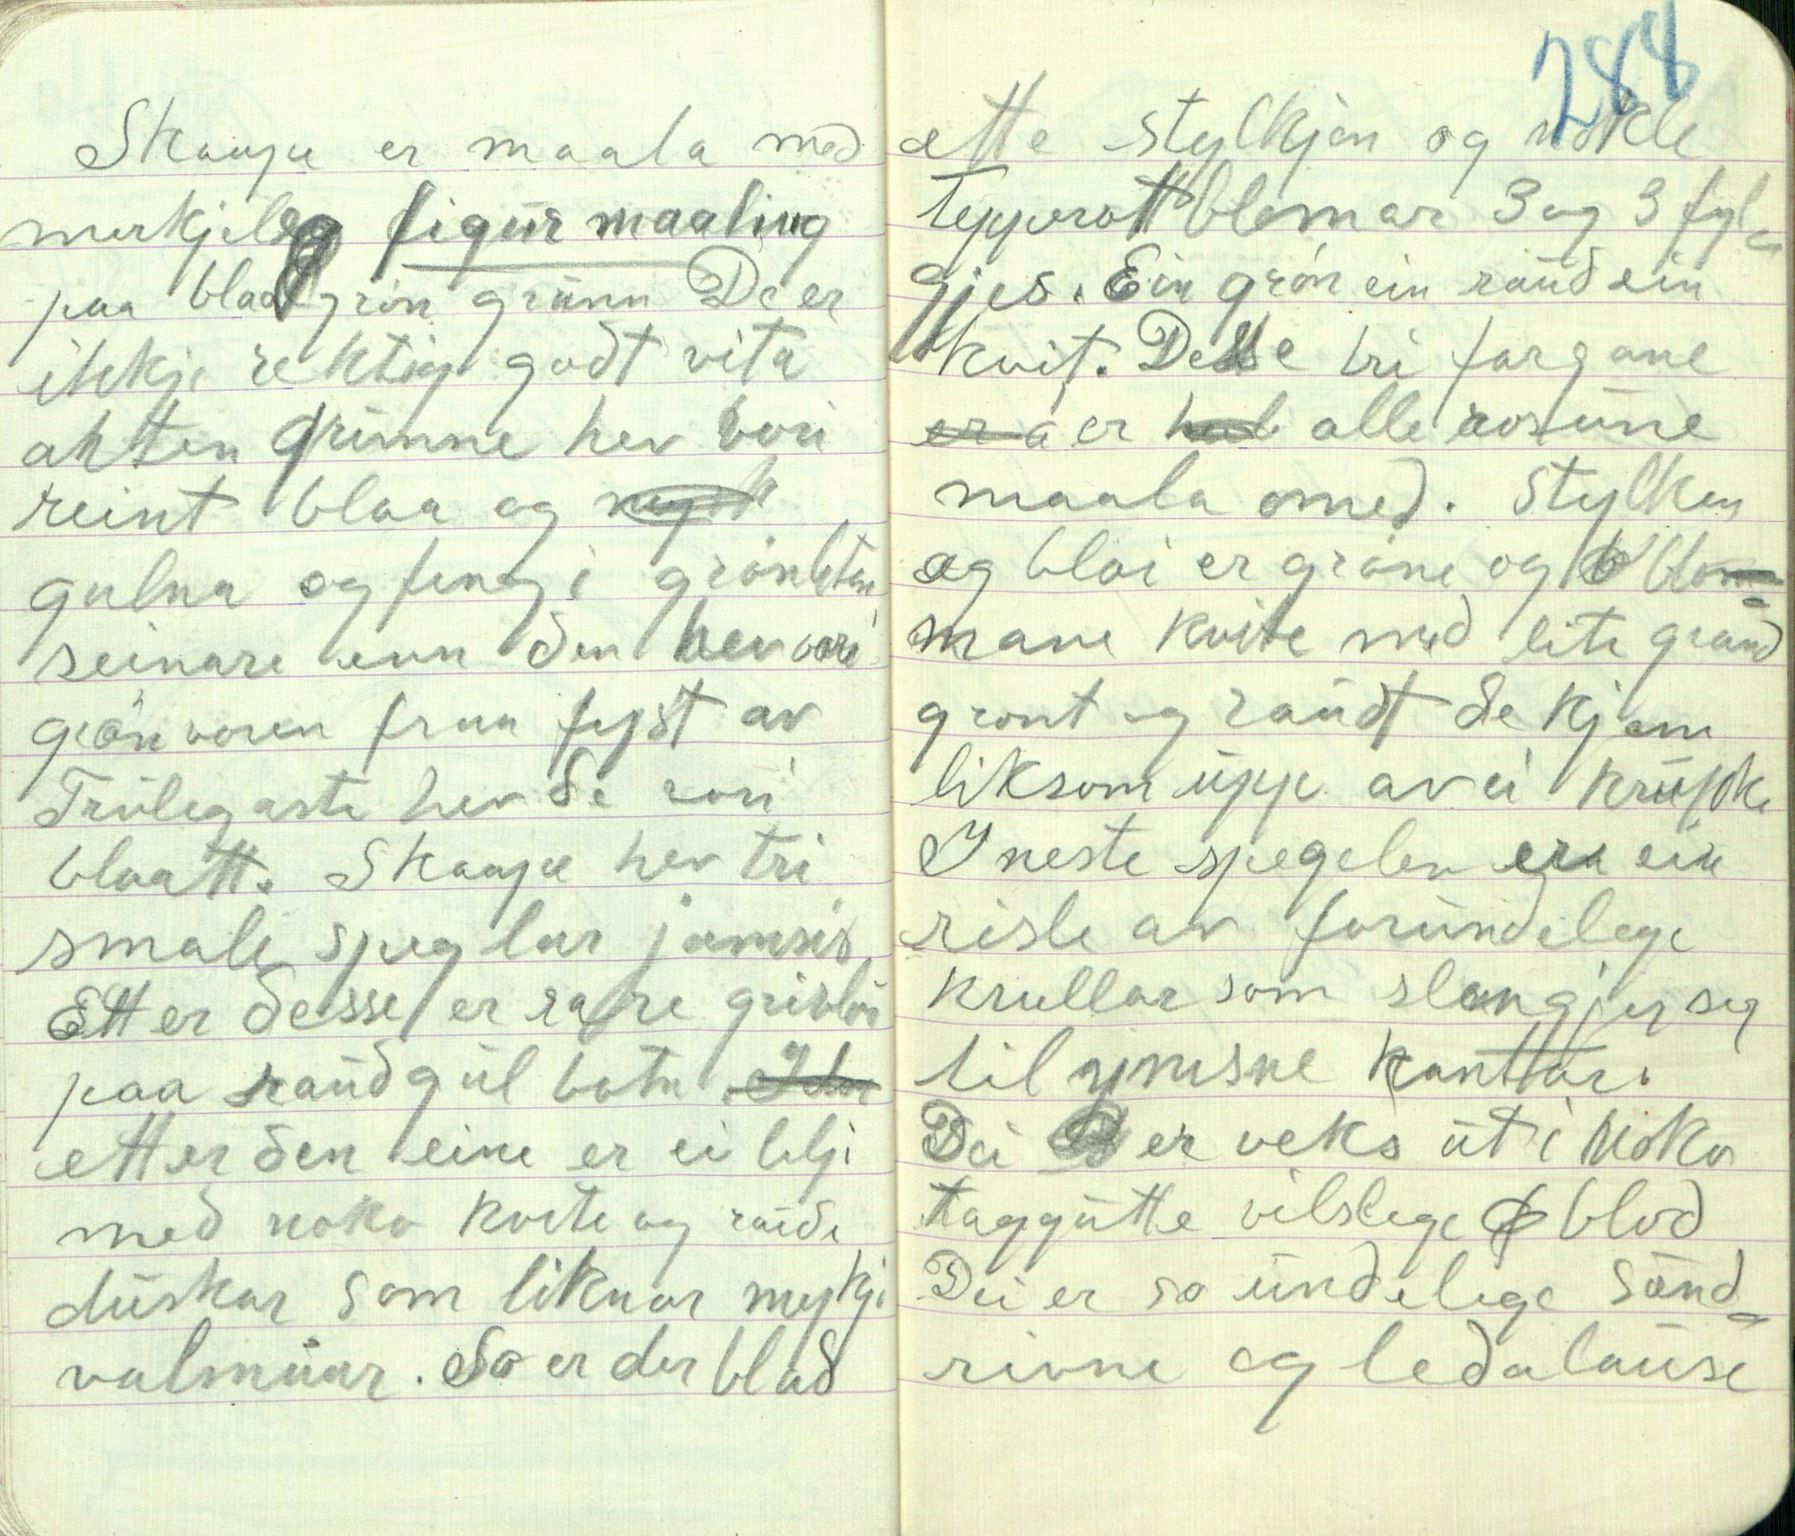 Skaape er maala med
merkjeleg figurmaaling
paa blaagrøn grunn De er
ikkje rektig godt vita
ahtten grunne hev vori
reint blaa og
gulna og feng i grønleten
seinare enn den hev vore
grøn voren fraa fyst av
Trulegaste hev de vori
blaatt. Skaape hev tri
smale speglar jamsis
Etter desse er rare
paa raudgul botn
etter den eine er ei lilje
med noko kvite og raude
duskar som liknar mykje
valmuar. So er der blad
288
ette stylkjen og nokle
tepperottblomar 3 og 3 fyl-
gjes. Ein grøn ein raud ein
kvit. Desse tri fargane
er alle rosune
maala med. Stylken
og blai er grøne og blom-
mane kvite med lite grand
grønt og raudt de kjem
liksom upp av ei krukke
I neste spegelen er ein
risle av forundelege
krullar som slengjer seg
til ymsne kanttar.
Dei er veks ut i noko
taggutte vilslege blod
Dei er so undelege sond-
rivne og ledalause